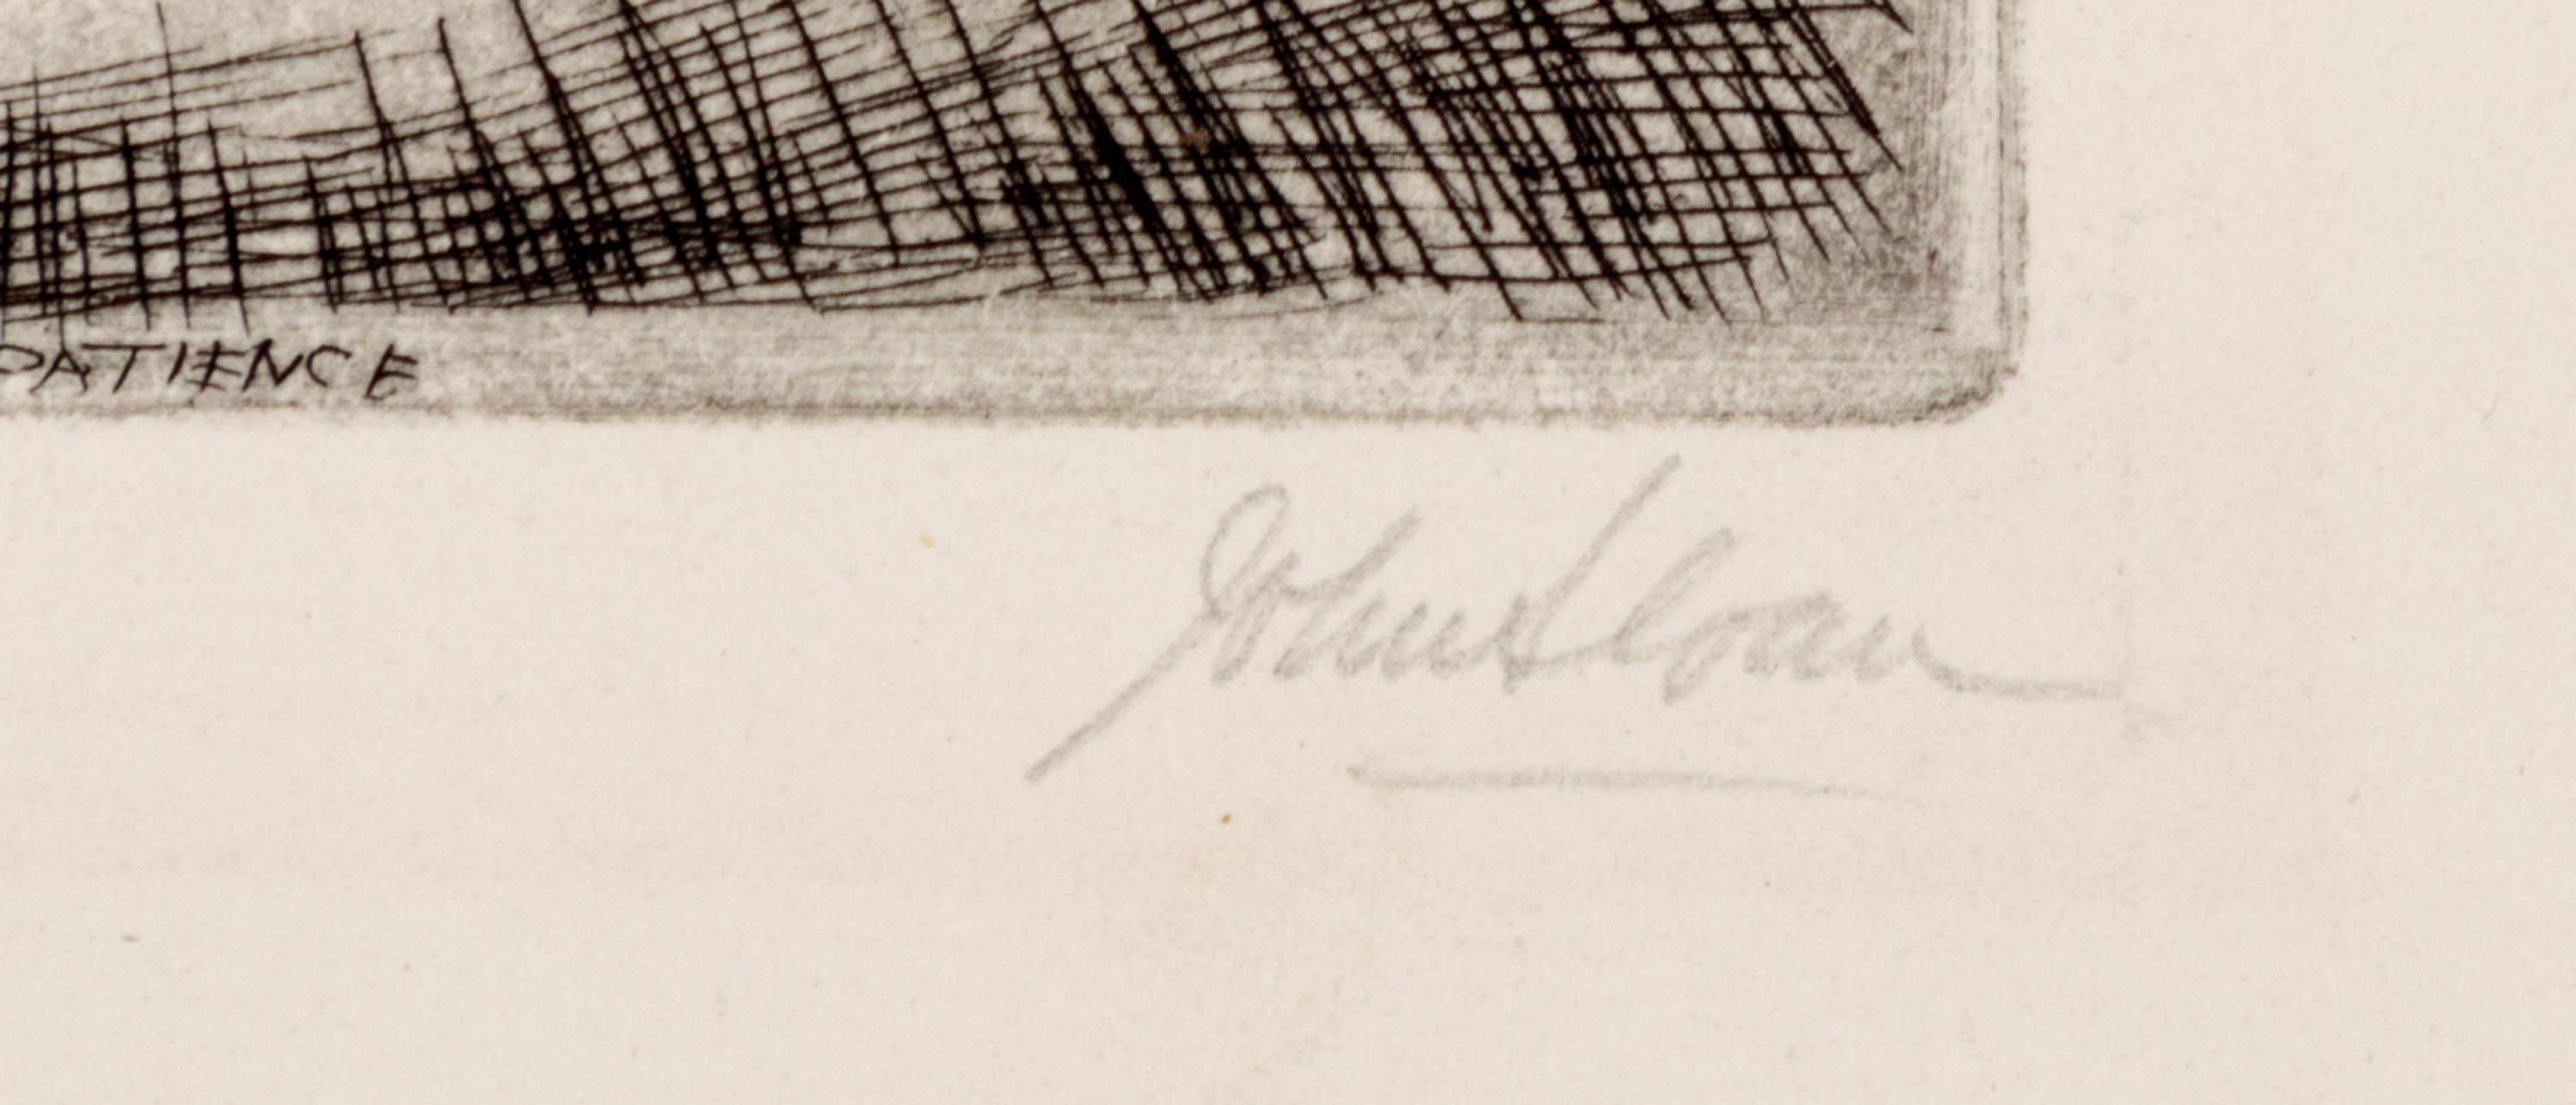 PATIENCE
John Sloan